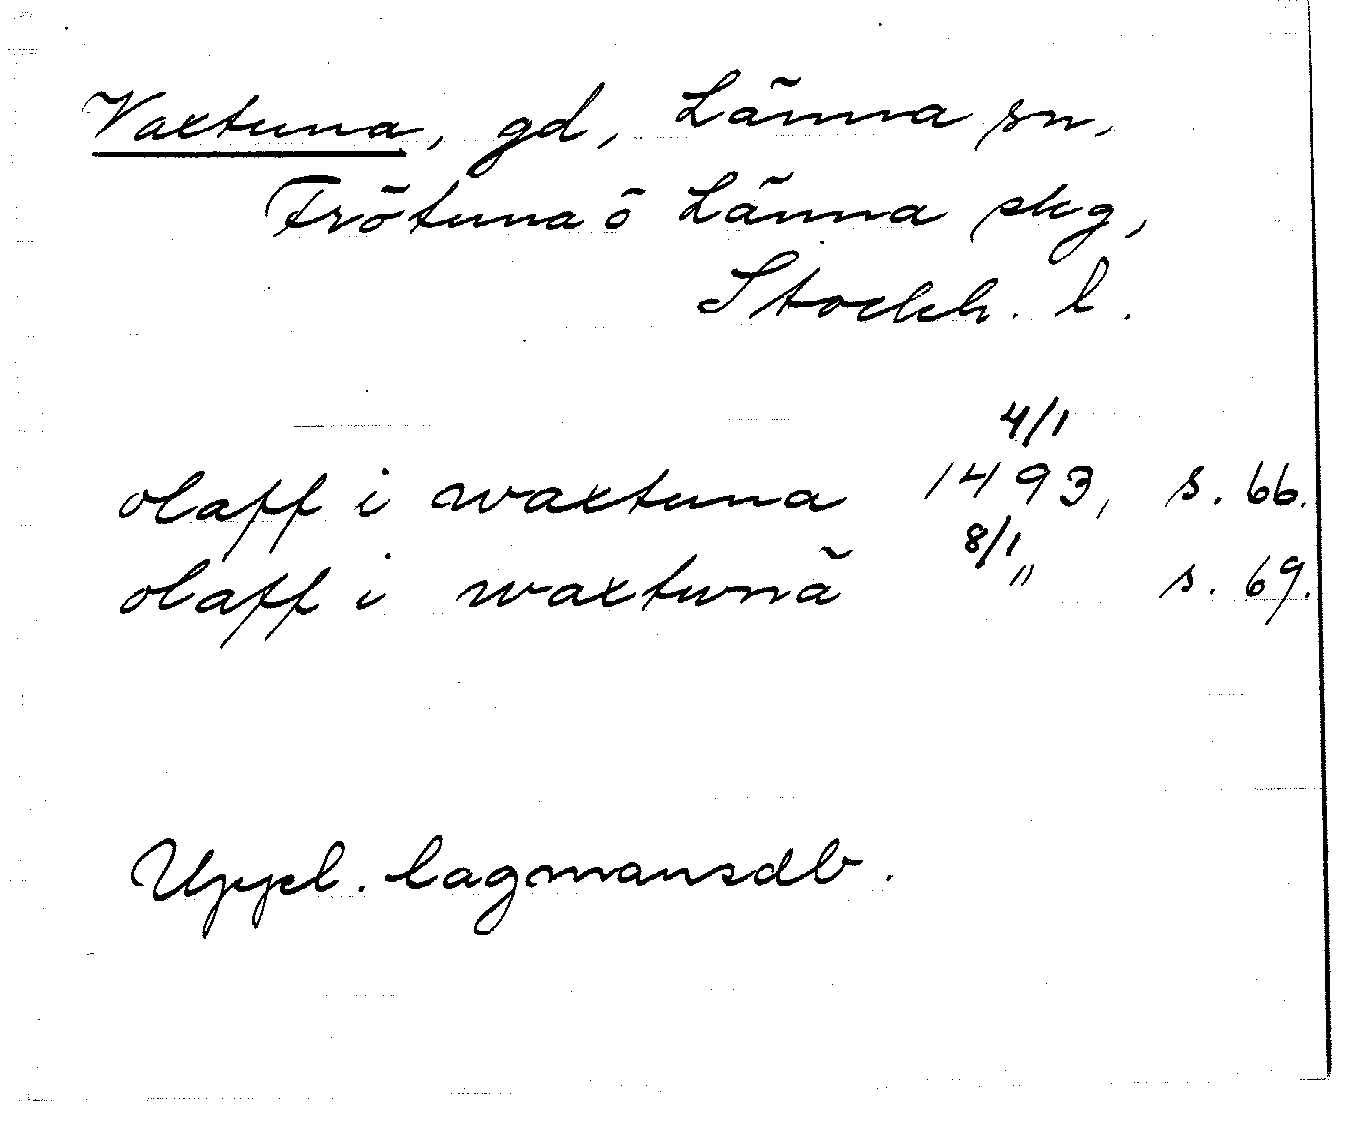 Vaxtuna, gd, Länna sn,
Frötuna o Länna skg,
Stockh. l.
4/1
olaff i waxtuna 1493, s. 66.
8/1
olaff i waxtunä " s. 69.
Uppl. lagmansdb.